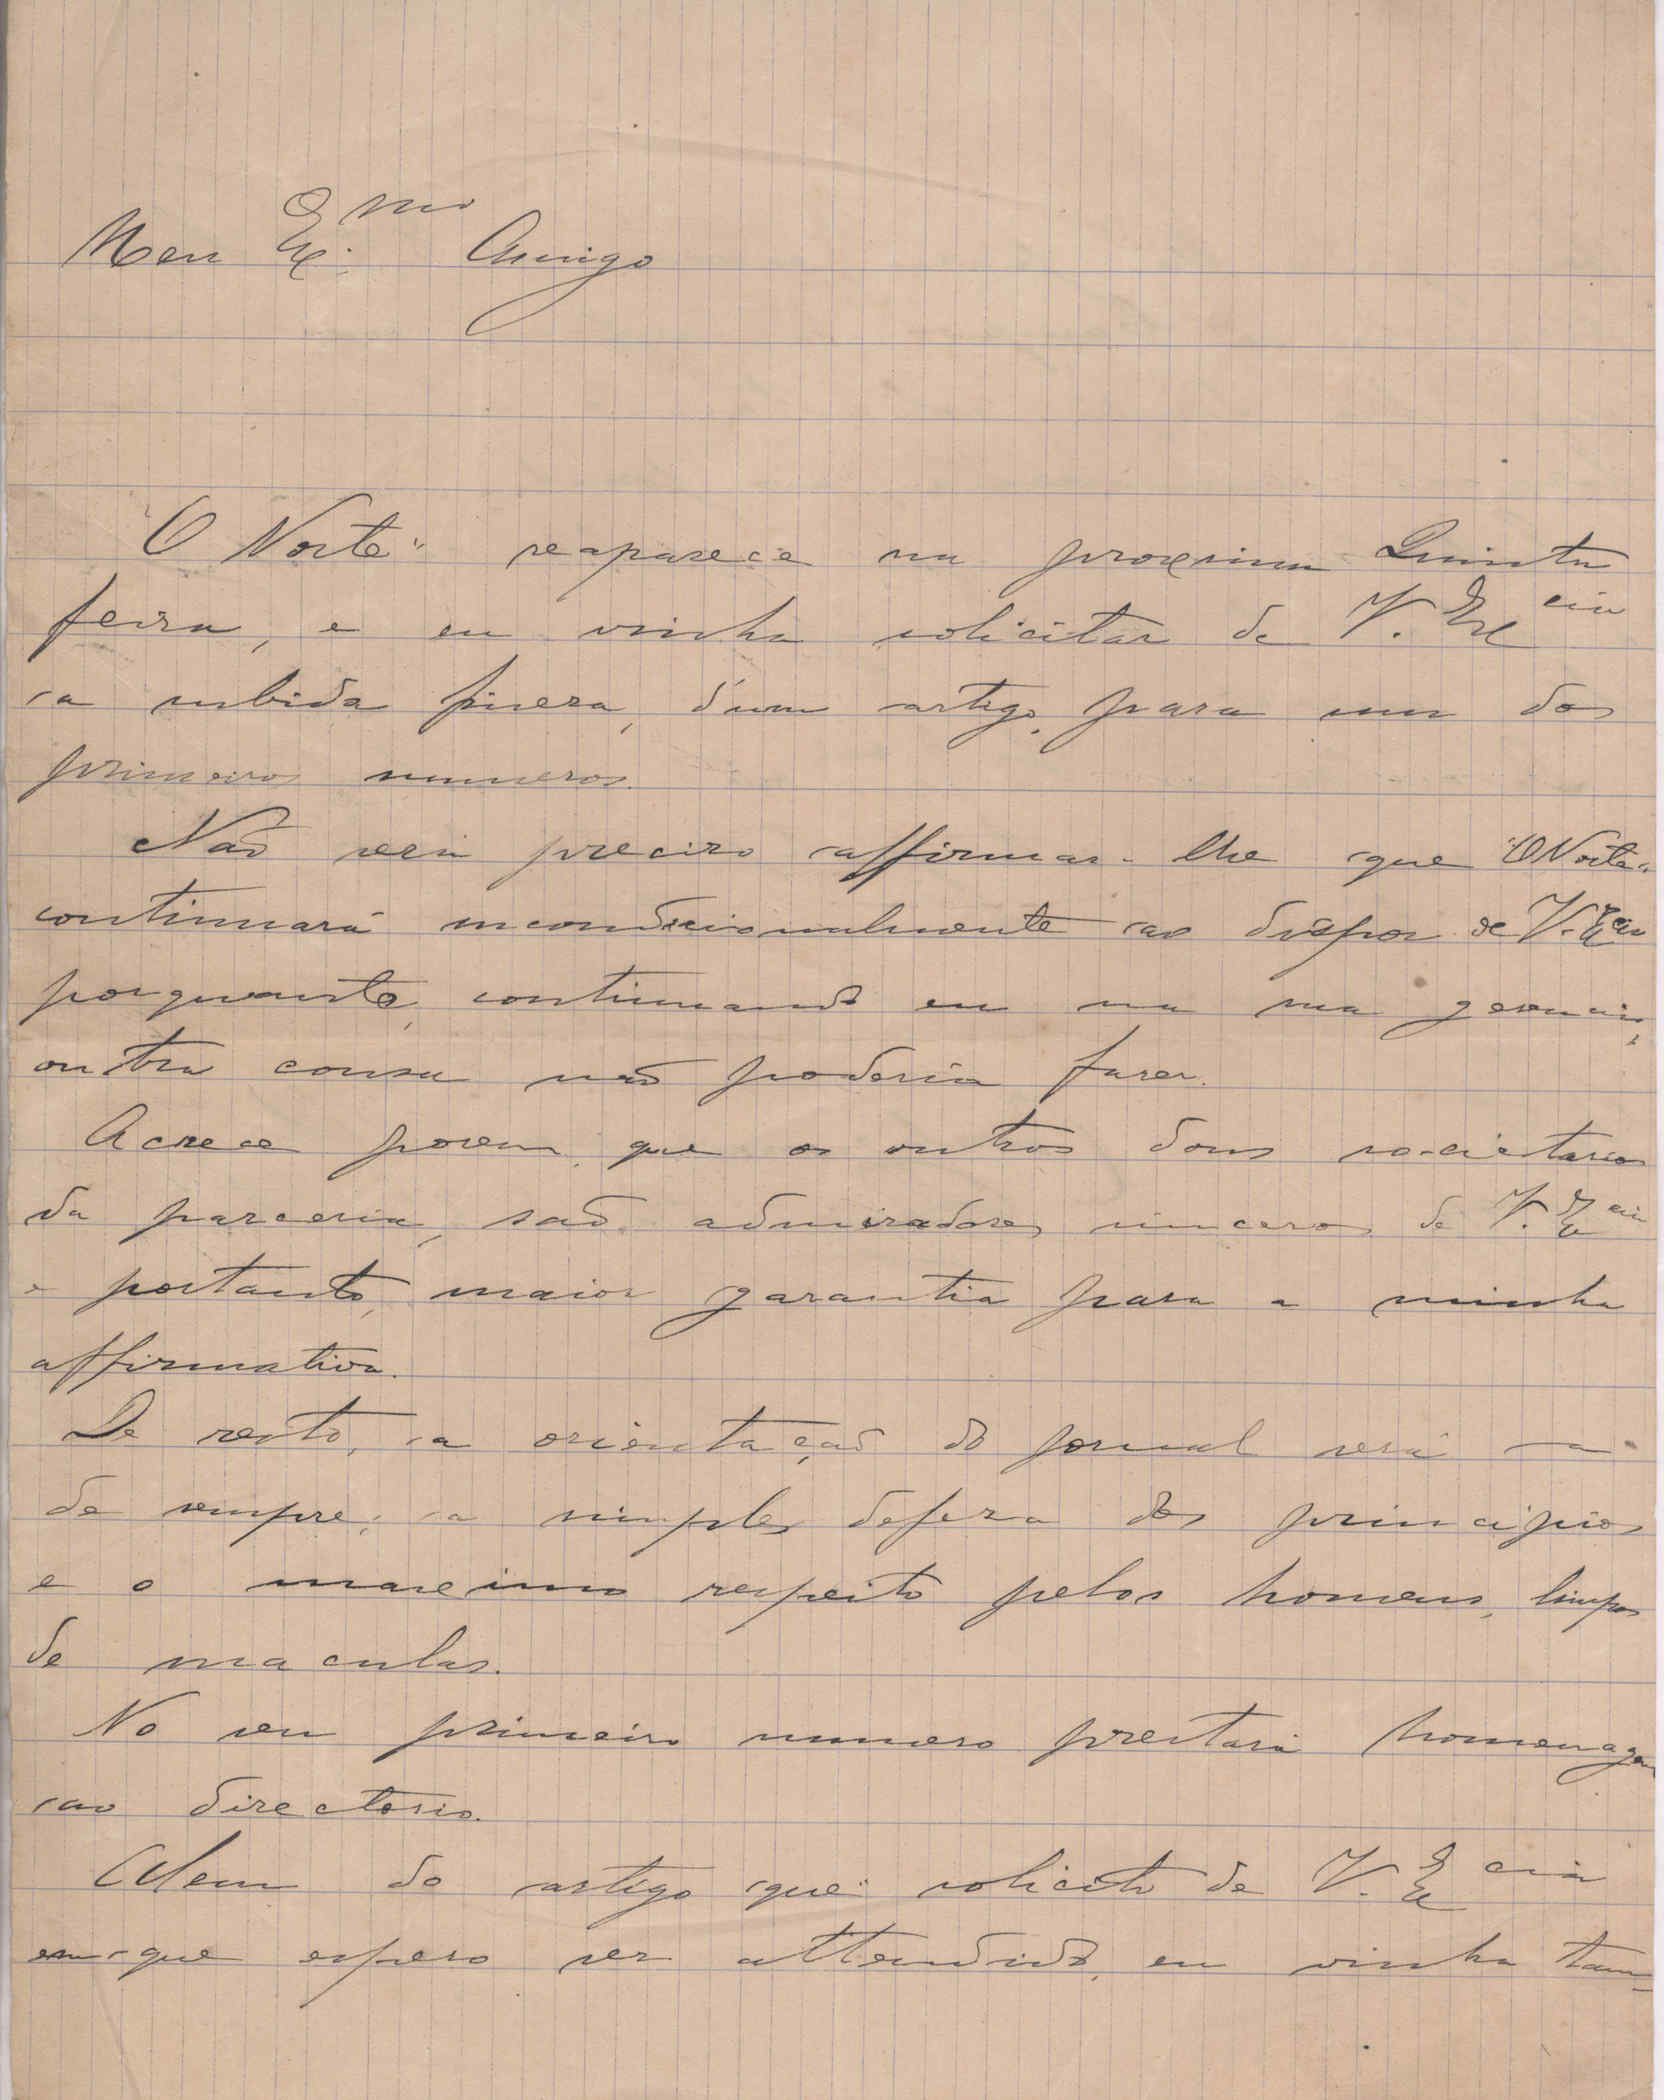 Meu Ex.mo Amigo
"O Norte" reaparece na proxima Quinta
feira, e eu vinha solicitar de V. Ex.cia
a subida fineza, d'um artigo, para um dos
primeiros numeros.
Não será preciso affirmar-lhe que "O Norte"
continuará incondicionalmente ao dispor de V. Ex.cia
porquanto, continuando eu na sua gerencia,
outra cousa não poderia fazer.
Acresce porem, que os outros dous societarios
da parceria, são admiradores sinceros de V. Ex.cia
e portanto, maior garantia para a minha
affirmativa.
De resto, a orientação do jornal será a
de sempre: a simples defeza dos principios
e o maximo respeito pelos homens, limpos
de maculas.
No seu primeiro numero prestará homenagem
ao directorio.
Alem do artigo que solicito de V. Ex.cia
em que espero ser attendido, eu vinha tam-